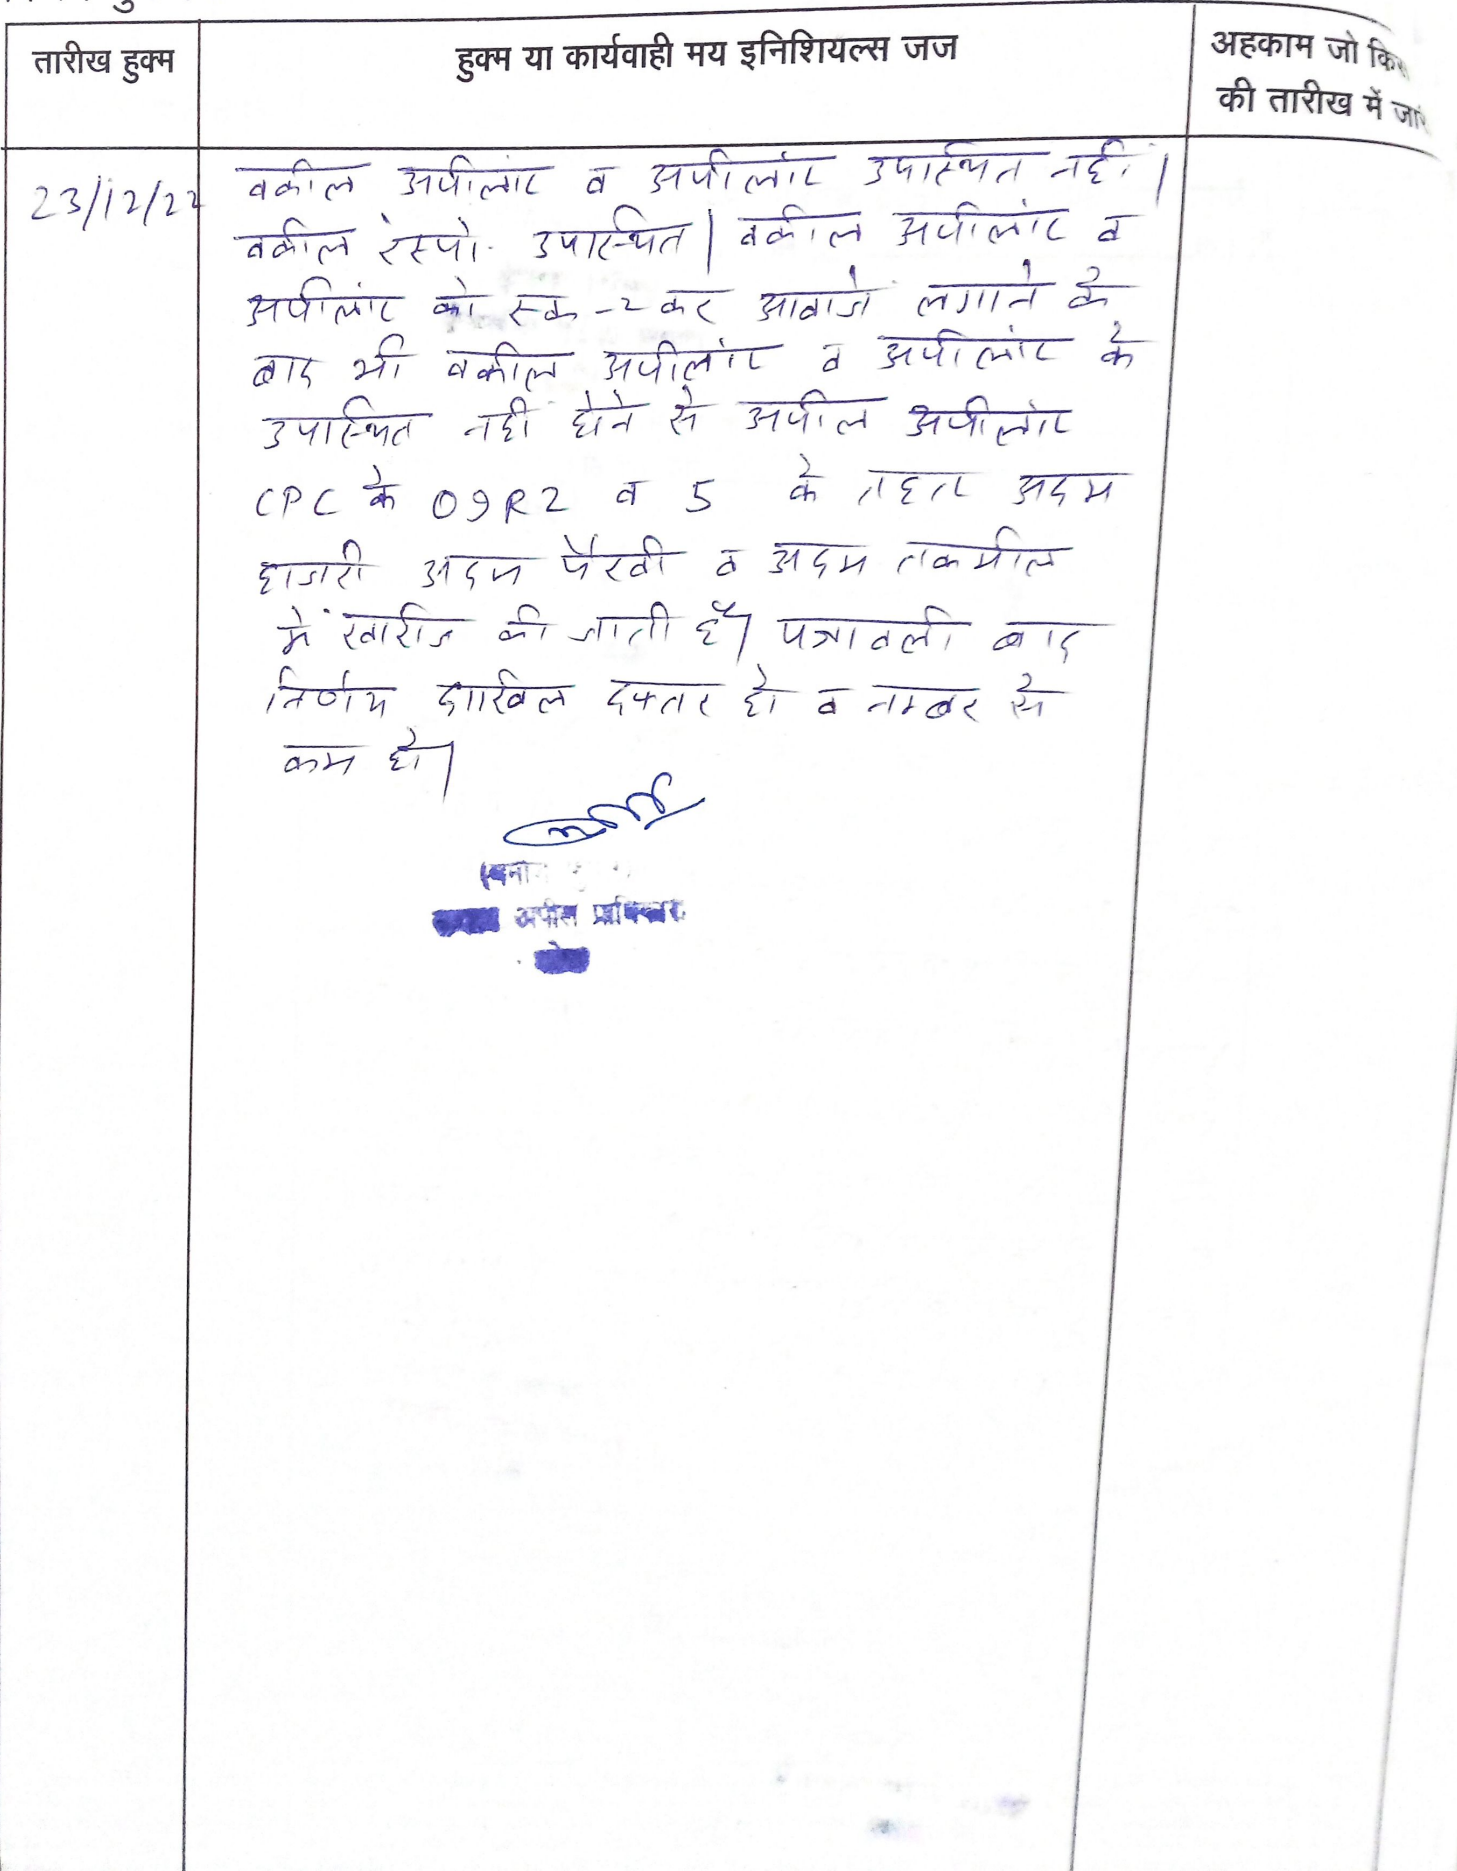 तारीख हुक्म
हुक्म या कार्यवाही मय इनिशियल्स जज
अहकाम जो
की तारीख में
23/12/22
वकील अपीलांट व अपीलांट उपस्थित नहीं।
वकील रेस्पो. उपस्थित। वकील अपीलांट व
अपीलांट को एक-2 कर आवाजे लगाने के
बाद भी वकील अपीलांट व अपीलांट के
उपस्थित नही होने से अपील अपीलांट
CPC के O9R2 व 5 के तहत अदम
हाजरी अदम पैरवी व अदम तकमील
में खारीज की जाती हैं। पत्रावली बाद
निर्णय दाखिल दफ्तर हो व नम्बर से
कम हो।
अपील प्राधिकारी